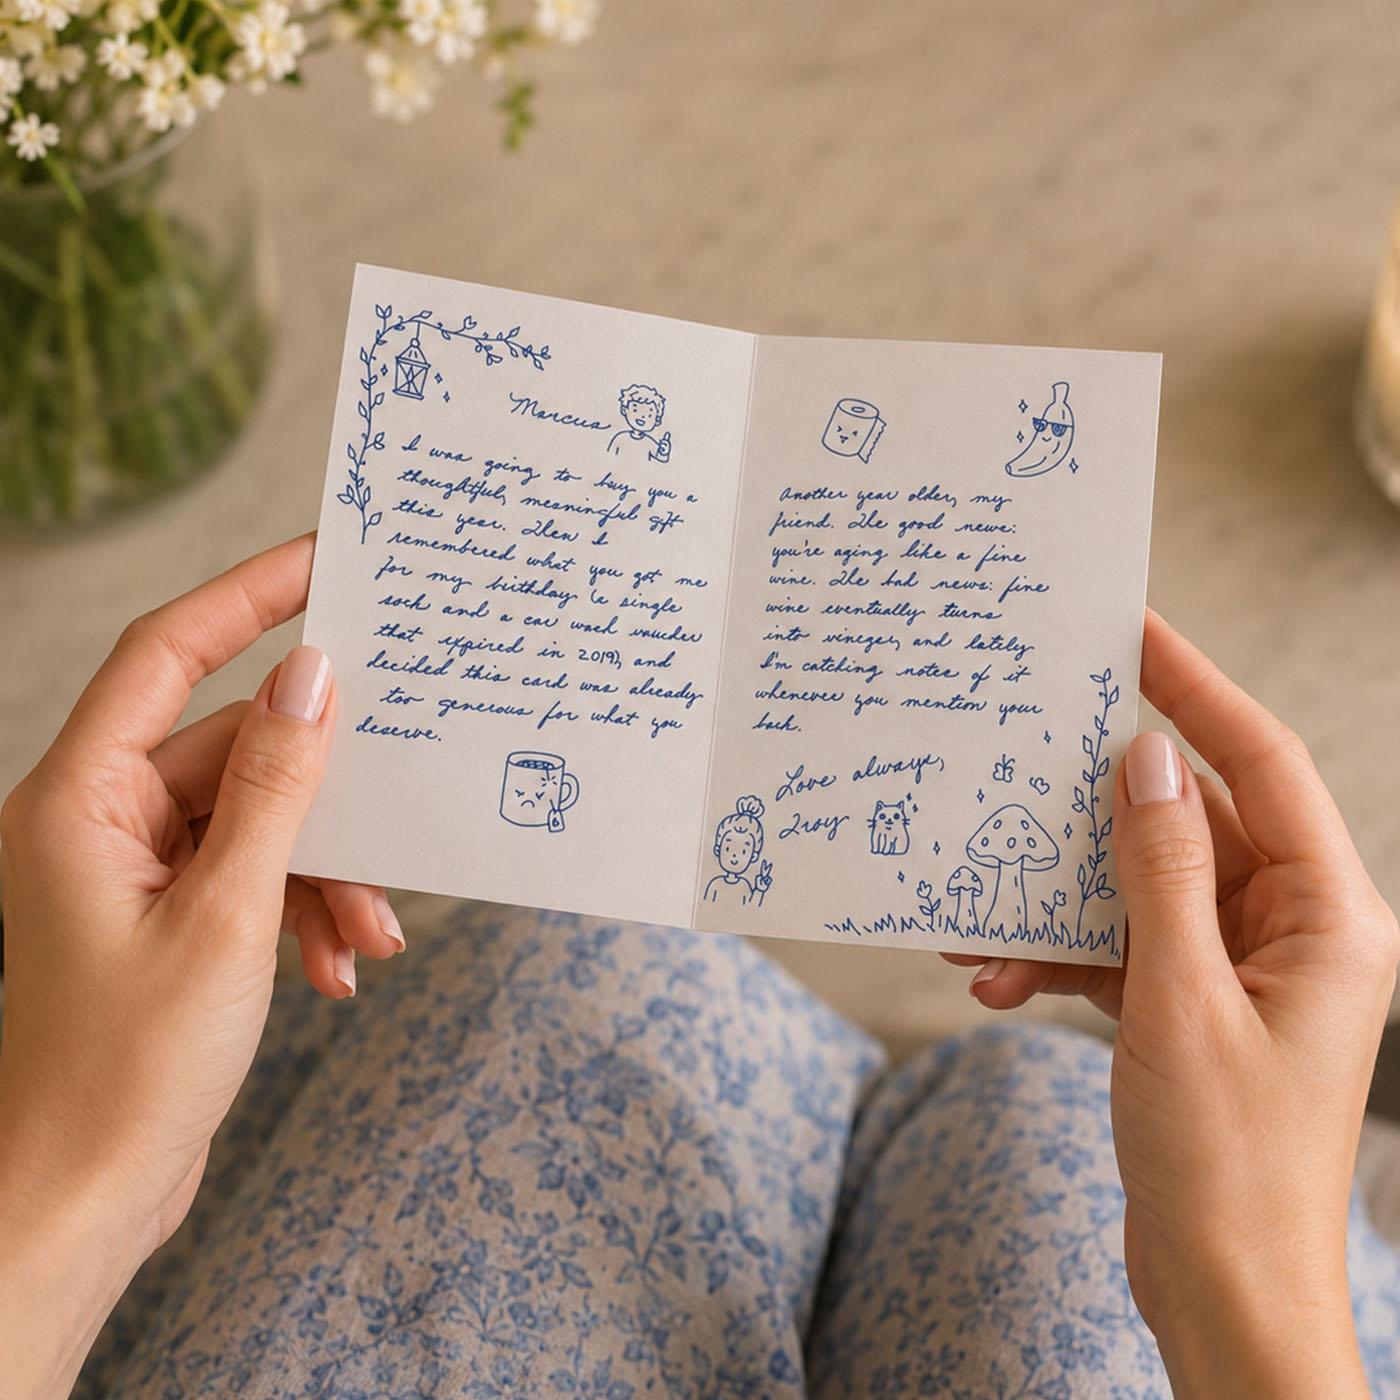 Marcus
I was going to buy you a
thoughtful, meaningful gift
this year. Then I
remembered what you got me
for my birthday (a single
sock and a car wash voucher
that expired in 2019), and
decided this card was already
too generous for what you
deserve.
Another year older, my
friend. The good news:
you're aging like a fine
wine. The bad news: fine
wine eventually turns
into vinegar, and lately
I'm catching notes of it
whenever you mention your
back.
Love always,
Troy